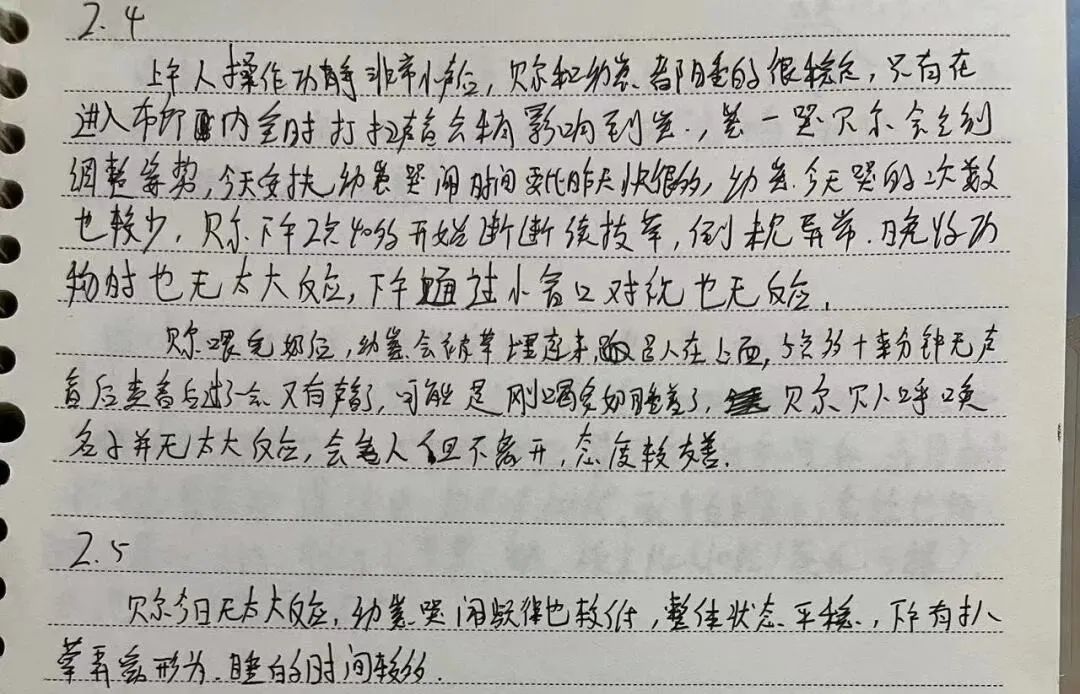 2.4
上午人操作动静非常小声应,贝尔和幼崽都睡的很稳定,只有在
进入布即内室时打扫声音会稍影响到崽,崽一哭贝尔会立刻
调整姿势,今天安抚幼崽哭闹时间要比昨天快很多,幼崽今天哭的次数
也较少,贝尔下午2点40多开始断断续续草,倒机异常.晚饲
物时也无太大反应,下午通过小窗口对视也无反应,
贝尔喂完奶后,幼崽会被草埋起来,人在上面,5点多十来分钟无声
音后查看后过了会又有声音了,可能是刚喝完奶睡着了,贝尔对人呼唤
名子并无太大反应,会看人但不离开,态度较友善.
2.5
贝尔今日无太大反应,幼崽哭闹频律也较低,整体状态平稳,下午有扒
草弄窝形为.睡的时间较多.